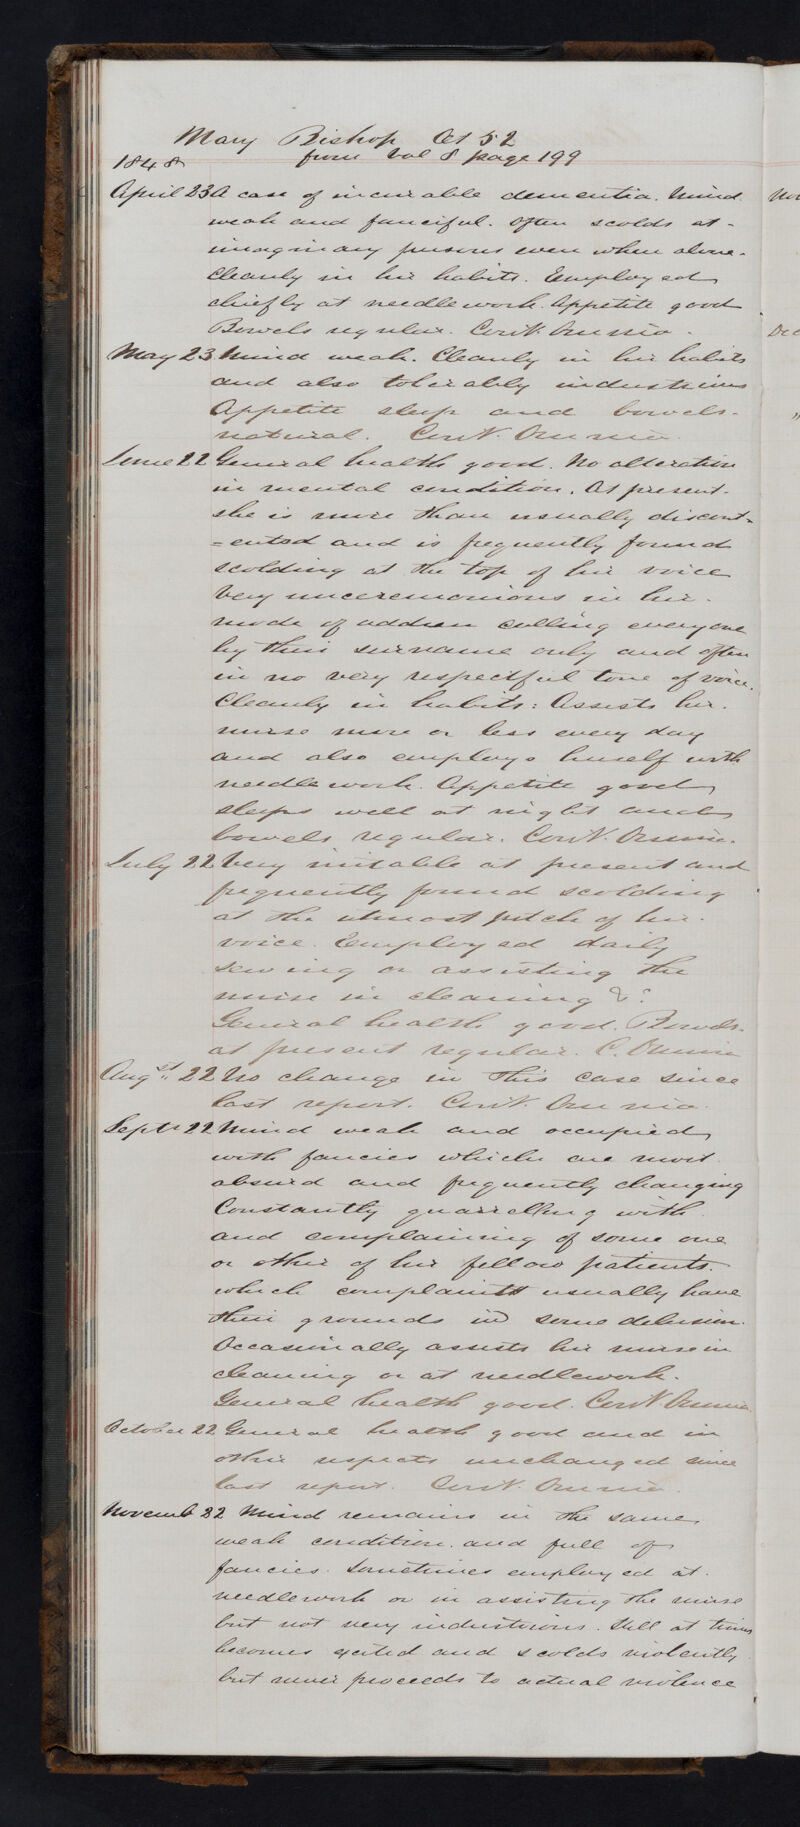 Mary Bishop Æt 52
1848 from Vol 8 page 199
April 23 A case of incurable dementia. Mind
weak and fanciful. Often scolds at
imaginary persons even when alone.
Cleanly in her habits. Employed
chiefly at needlework. Appetite good
Bowels regular. Cont.
May 23 Mind weak. Cleanly in her habits
and also tolerably industrious
Appetite sleep and bowels
natural. Cont.
June 22 General health good. No alteration
in mental condition. At present
she is more than usually discont=
=ented and is frequently found
scolding at the top of her voice
Very unceremonious in her
mode of address calling everyone
by their surname only and often
in no very respectful tone of voice.
Cleanly in habits: Assists her
nurse more or less every day
and also employs herself with
needlework. Appetite good
sleeps well at night and
bowels regular. Cont.
July 22 Very irritable at present and
frequently found scolding
at the utmost pitch of her
voice. Employed daily
sewing or assisting the
nurse in cleaning &c
General health good. Bowels
at present regular. C.
Augst 22 No change in this case since
last report. Cont.
Septr 22 Mind weak and occupied
with fancies which are most
absurd and frequently changing
Constantly quarrelling with
and complaining of some one
or other of her fellow patients.
which complaints usually have
their grounds in some delusion.
Occasionally assists her nurse in
cleaning or at needlework.
General health good. Cont.
October 22 General health good and in
other respects unchanged since
last report. Cont.
Novemb 22 Mind remains in the same
weak condition and full of
fancies. Sometimes employed at
needlework or in assisting the nurse
but not very industrious. Still at times
becomes excited and scolds violently
but never proceeds to actual violence
Nov
Dec
"